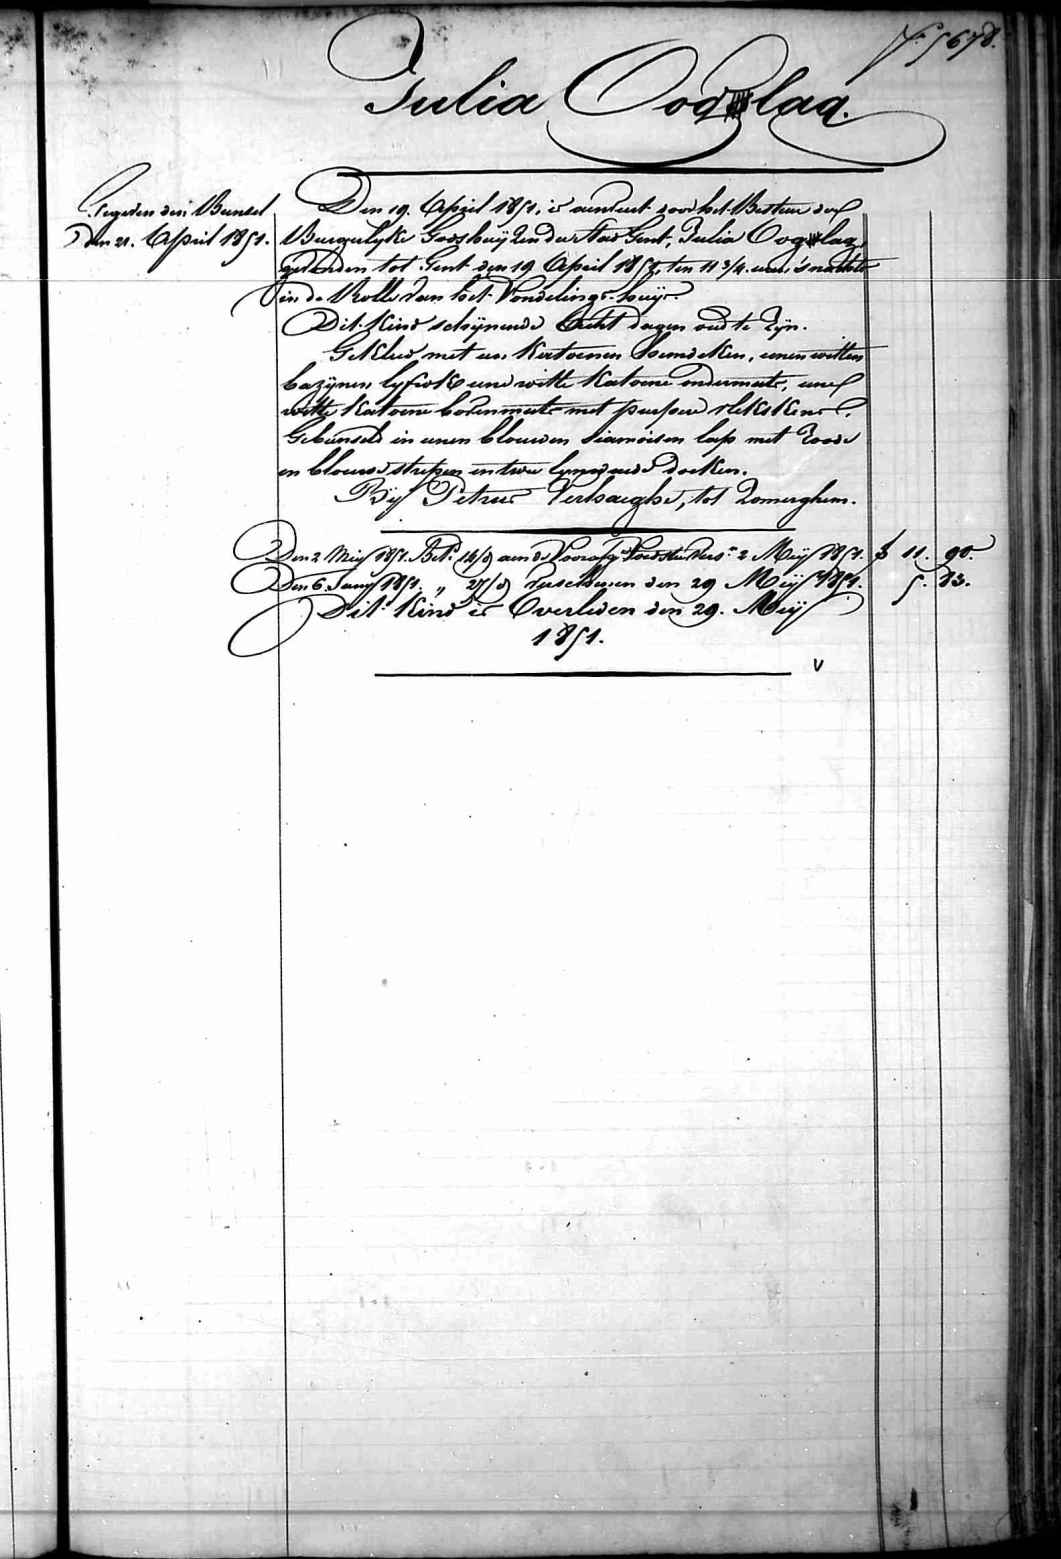 N° 5678.
Julia Oogslag.
Gegeven den Bundsel
den 21. April 1851.
Den 19. April 1851, is aenveert door het Bestuer der
Burgerlyke Godshuyzen der stad Gent, Julia Oogslag,
gevonden tot Gent den 19 April 1851, ten 11 3/4 uren 's nachts
in de Rolle van het Vondelings-huys.
Dit Kind schynende Acht dagen oud te zyn.
Gekleed met een Kattoenen hemdeken, eenen witten
bazynen lyfrok, eene witte Katoene ondermuts, eene
witte Katoene bovenmuts met purpere vlekskens.
Gebunseld in eenen blauwen siamoisen lap met roode
en blauwe strepen en twee lynwaede doeken.
By Petrus Verhaeghe, tot Zomerghem.
Den 2 Mey 1851. Bet. 14/d aen de Voedster 2 Mey 1851. f 11. 90.
Den 6. Juny 1851. „ 27/d verschenen den 29 Mey 1851. 5. 83.
Dit Kind is Overleden den 29. Mey
1851.
v